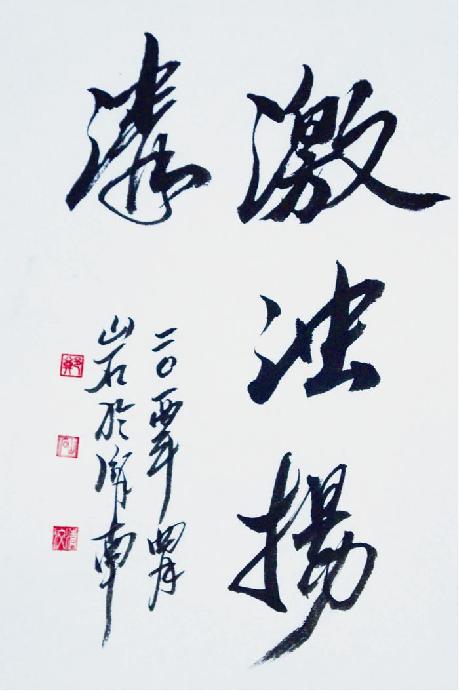 激浊揚
清
二〇一四年四月
山石於南